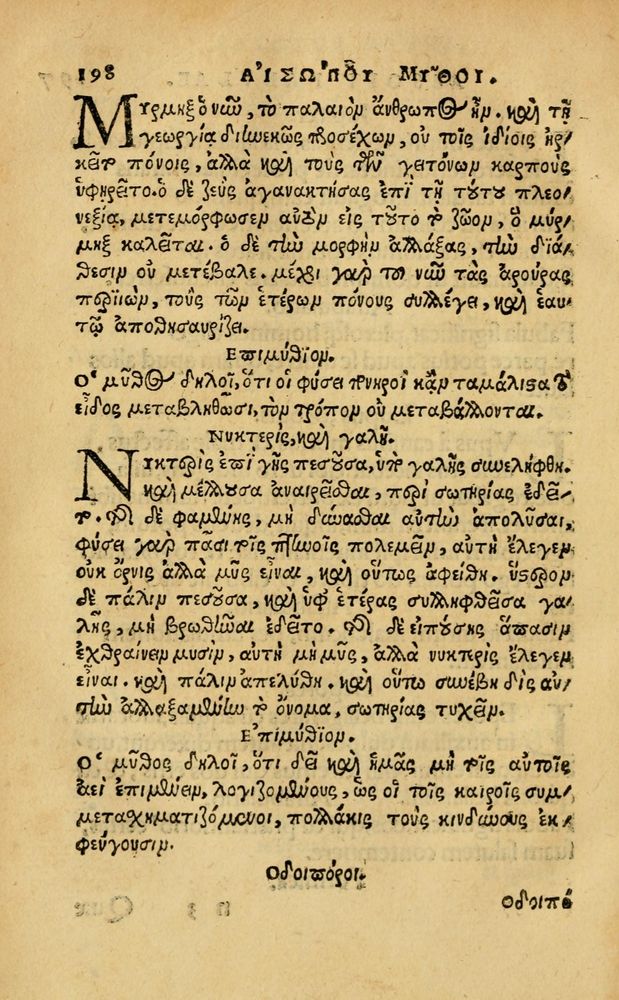 198 ΑἸΣΏΠΟΥ ΜΥ͂ΘΟΙ.
ΜΥρμηξ ὁ νῦν, το παλαιὸν ἄνθρωπος ἦν. καὶ τῇ
γεωργίᾳ διηνεκῶς προσέχων, οὐ τοῖς ἰδίοις ἠρ-
κεῖτο πόνοις, ἀλλὰ καὶ τοὺς τῶν γειτόνων καρποὺς
ὑφῃρεῖτο. ὁ δὲ ζεὺς ἀγανακτήσας ἐπὶ τῇ τούτου πλεο-
νεξίᾳ, μετεμόρφωσεν αὐτὸν εἰς τοῦτο τὸ ζῶον, ὃ μύρ-
μηξ καλεῖται. ὁ δὲ τὴν μορφὴν ἀλλάξας, τὴν διά-
θεσιν οὐ μετέβαλε. μέχρι γὰρ τοῦ νῦν τὰς ἀρούρας
περιϊὼν, τοὺς τῶν ἑτέρων πόνους συλλέγει, καὶ ἑαυ-
τῷ ἀποθησαυρίζει.
Ἐπιμύθιον.
Ὁ μῦθος δηλοῖ, ὅτι οἱ φύσει πονηροὶ κᾂν ταμάλιστα τὸ
εἶδος μεταβληθῶσι, τὸν τρόπον οὐ μεταβάλλονται.
Νυκτερὶς, καὶ γαλῆ.
ΝΥκτερὶς ἐπὶ γῆς πεσοῦσα, ὑπὸ γαλῆς συνελήφθη.
καὶ μέλλουσα ἀναιρεῖσθαι, περὶ σωτηρίας ἐδεῖ-
το. τῆς δὲ φαμένης, μὴ δύνασθαι αὐτὴν ἀπολῦσαι,
φύσει γὰρ πᾶσι τοῖς πτηνοῖς πολεμεῖν, αὐτὴ ἔλεγεν
οὐκ ὄρνις ἀλλὰ μῦς εἶναι, καὶ οὕτως ἀφείθη. ὕστερον
δὲ πάλιν πεσοῦσα, καὶ ὑφ' ἑτέρας συλληφθεῖσα γα-
λῆς, μὴ βρωθῆναι ἐδεῖτο. τῆς δὲ εἰπούσης ἅπασιν
ἐχθραίνειν μυσὶν, αὐτὴ μὴ μῦς, ἀλλὰ νυκτερὶς ἔλεγεν
εἶναι. καὶ πάλιν ἀπελύθη. καὶ οὕτω συνέβη δὶς αὐ-
τὴν ἀλλαξαμένην τὸ ὄνομα, σωτηρίας τυχεῖν.
Ἐπιμύθιον.
Ὁ μῦθος δηλοῖ, ὅτι δεῖ καὶ ἡμᾶς μὴ τοῖς αὐτοῖς
ἀεὶ ἐπιμένειν, λογιζομένους, ὡς οἱ τοῖς καιροῖς συμ-
μετασχηματιζόμενοι, πολλάκις τοὺς κινδύνους ἐκ-
φεύγουσιν.
Ὁδοιπόροι.
Ὁδοιπό